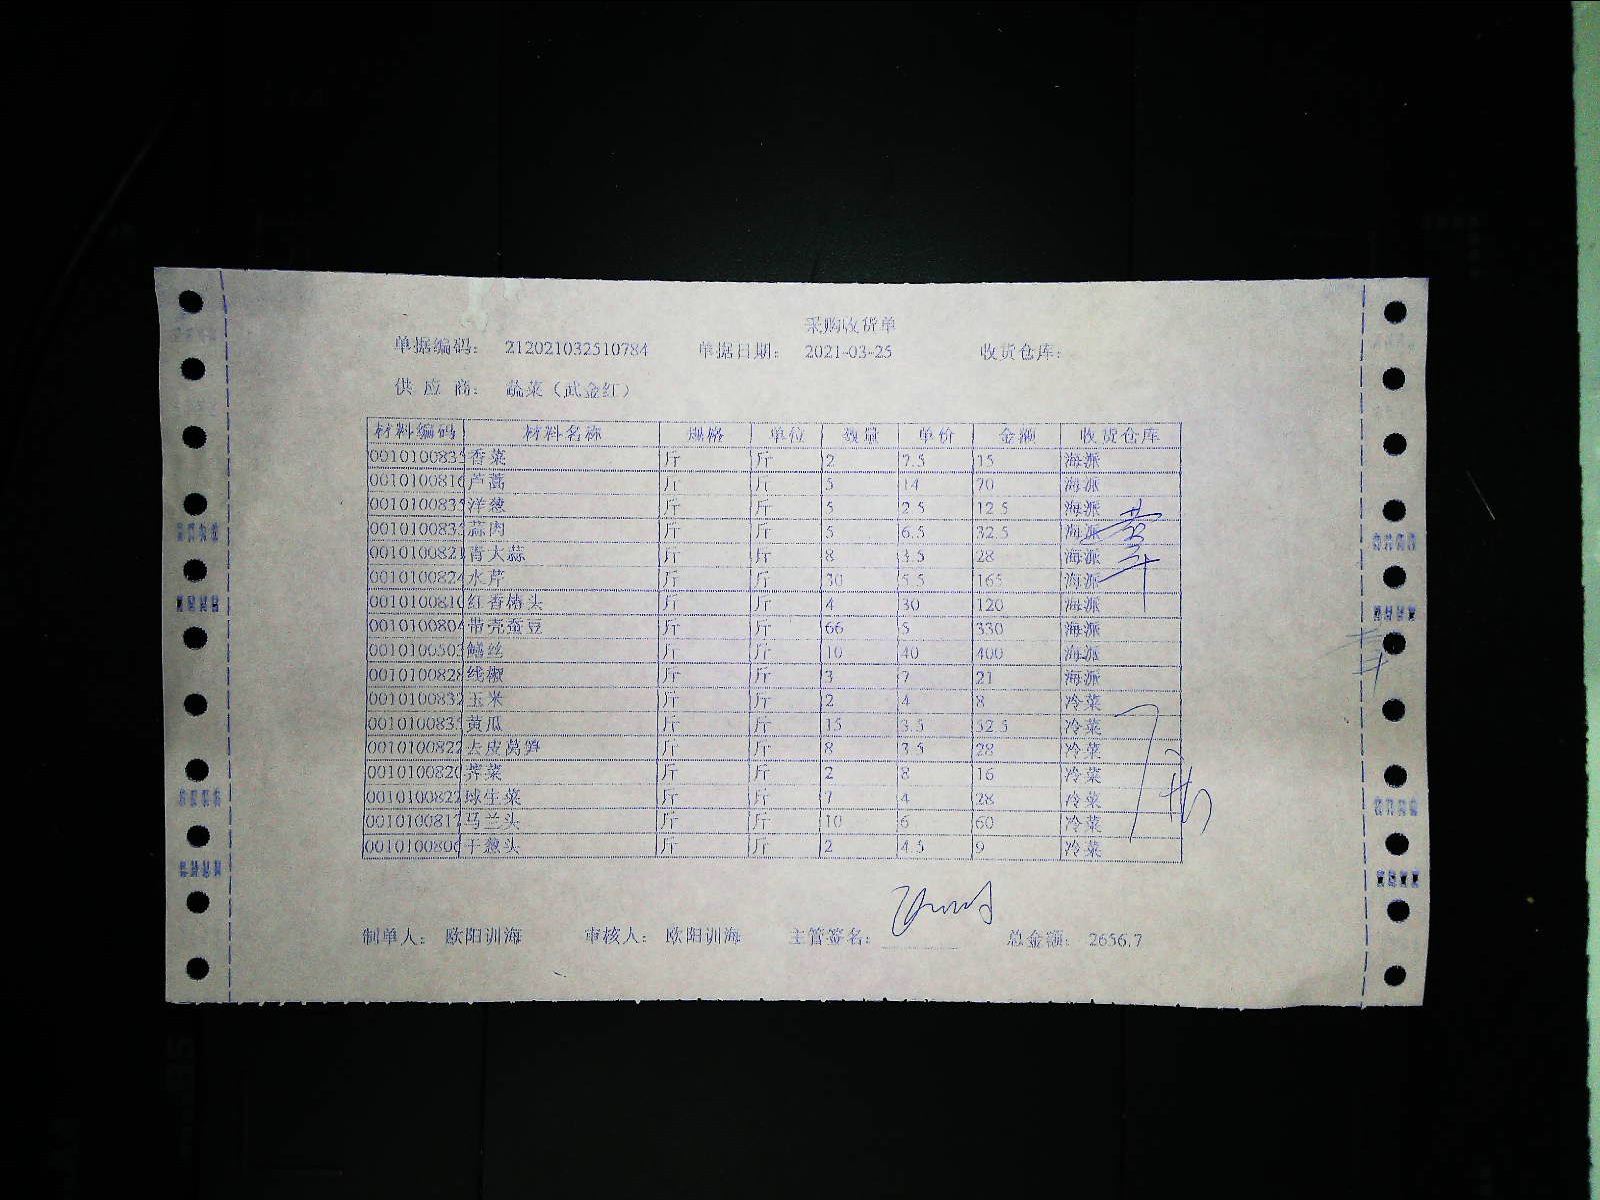 采购收货单
单据编码： 212021032510784 单据日期： 2021-03-25 收货仓库：
供 应 商： 蔬菜（武金红）
材料编码 材料名称 规格 单位 数量 单价 金额 收货仓库
0010100833 香菜 斤 斤 2 7.5 15 海派
0010100816 芦蒿 斤 斤 5 14 70 海派
0010100835 洋葱 斤 斤 5 2.5 12.5 海派
0010100833 蒜肉 斤 斤 5 6.5 32.5 海派
0010100821 青大蒜 斤 斤 8 3.5 28 海派
0010100824 水芹 斤 斤 30 5.5 165 海派
0010100810 红香椿头 斤 斤 4 30 120 海派
0010100804 带壳蚕豆 斤 斤 66 5 330 海派
0010100503 鳝丝 斤 斤 10 40 400 海派
0010100828 线椒 斤 斤 3 7 21 海派
0010100832 玉米 斤 斤 2 4 8 冷菜
0010100835 黄瓜 斤 斤 15 3.5 52.5 冷菜
0010100822 去皮莴笋 斤 斤 8 3.5 28 冷菜
0010100820 荠菜 斤 斤 2 8 16 冷菜
0010100822 球生菜 斤 斤 7 4 28 冷菜
0010100817 马兰头 斤 斤 10 6 60 冷菜
0010100806 干葱头 斤 斤 2 4.5 9 冷菜
制单人： 欧阳训海 审核人： 欧阳训海 主管签名： 总金额： 2656.7